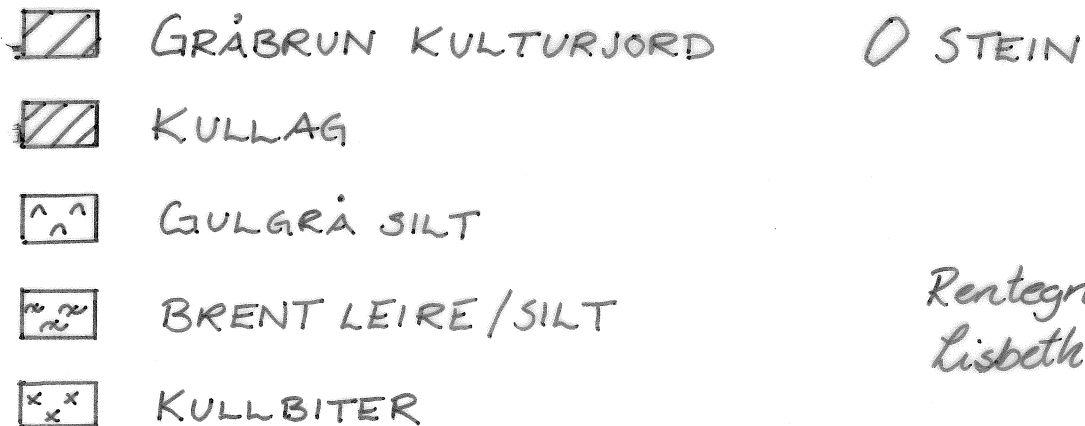 GRÅBRUN KULTURJORD
KULLAG
GULGRÅ SILT
BRENT LEIRE/SILT
KULLBITER
STEIN
Lisbeth